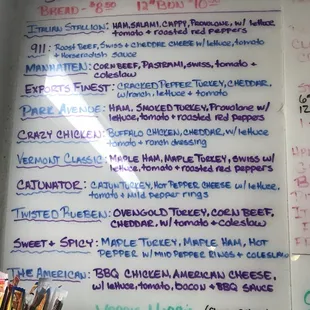 BREAD - 8.50 12" BUN 10.50
ITALIAN STALLION: HAM, SALAMI, CAPPY, PROVOLONE, w/ lettuce,
tomato + roasted red peppers
911: ROAST BEEF, SWISS + CHEDDAR CHEESE w/ lettuce, tomato
+ Horseradish sauce
MANHATTEN: CORN BEEF, PASTRAMI, SWISS, tomato +
coleslaw
EXPORTS FINEST: CRACKED PEPPER TURKEY, CHEDDAR,
w/ ranch, lettuce + tomato
PARK AVENUE: HAM, SMOKED TURKEY, Provolone w/
lettuce, tomato + roasted red peppers
CRAZY CHICKEN: BUFFALO CHICKEN, CHEDDAR, w/ lettuce,
tomato + ranch dressing
VERMONT CLASSIC: MAPLE HAM, MAPLE TURKEY, SWISS w/
lettuce, tomato + roasted red peppers
CAJUNATOR: CAJUN TURKEY, HOT PEPPER CHEESE w/ lettuce,
tomato + mild pepper rings
TWISTED RUEBEN: OVENGOLD TURKEY, CORN BEEF,
CHEDDAR, w/ tomato + coleslaw
SWEET + SPICY: MAPLE TURKEY, MAPLE HAM, HOT
PEPPER w/ MILD PEPPER RINGS + COLESLAW
THE AMERICAN: BBQ CHICKEN, AMERICAN CHEESE,
w/ lettuce, tomato, bacon + BBQ SAUCE